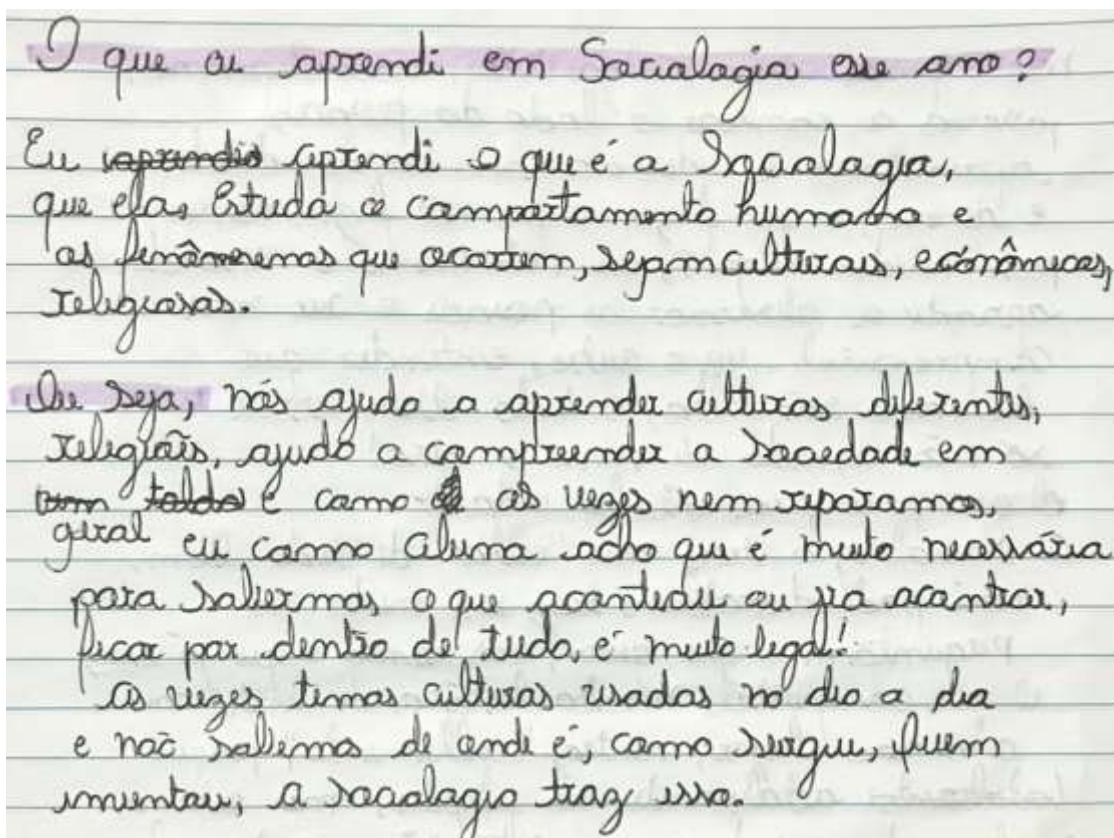 O que eu aprendi em Sociologia esse ano?
Eu aprendi o que é a Sociologia,
que ela, Estuda o comportamento humano e
os fenômenemos que ocorrem, sejam culturais, econômicos,
religiosas.
Ou seja, nós ajuda a aprender culturas diferentes,
religiões, ajuda a compreender a sociedade em
geral e como as vezes nem reparamos,
eu como aluna acho que é muito necessária
para sabermos o que aconteceu ou irá,
ficar por dentro de tudo, é muito legal!
as vezes temos culturas usadas no dia a dia
e não sabemos de onde é, como surgiu, quem
inventou, a sociologia traz isso.